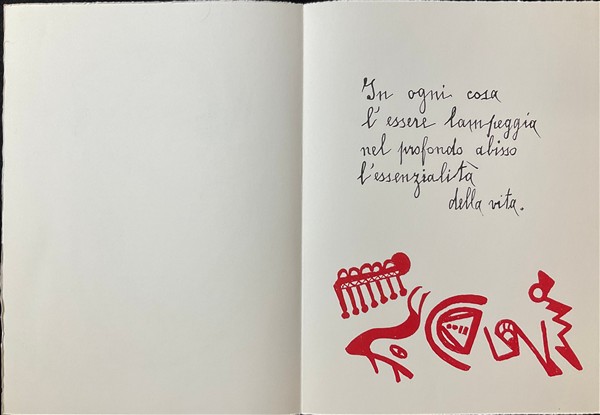 In ogni cosa
l'essere lampeggia
nel profondo abisso
l'essenzialità
della vita.